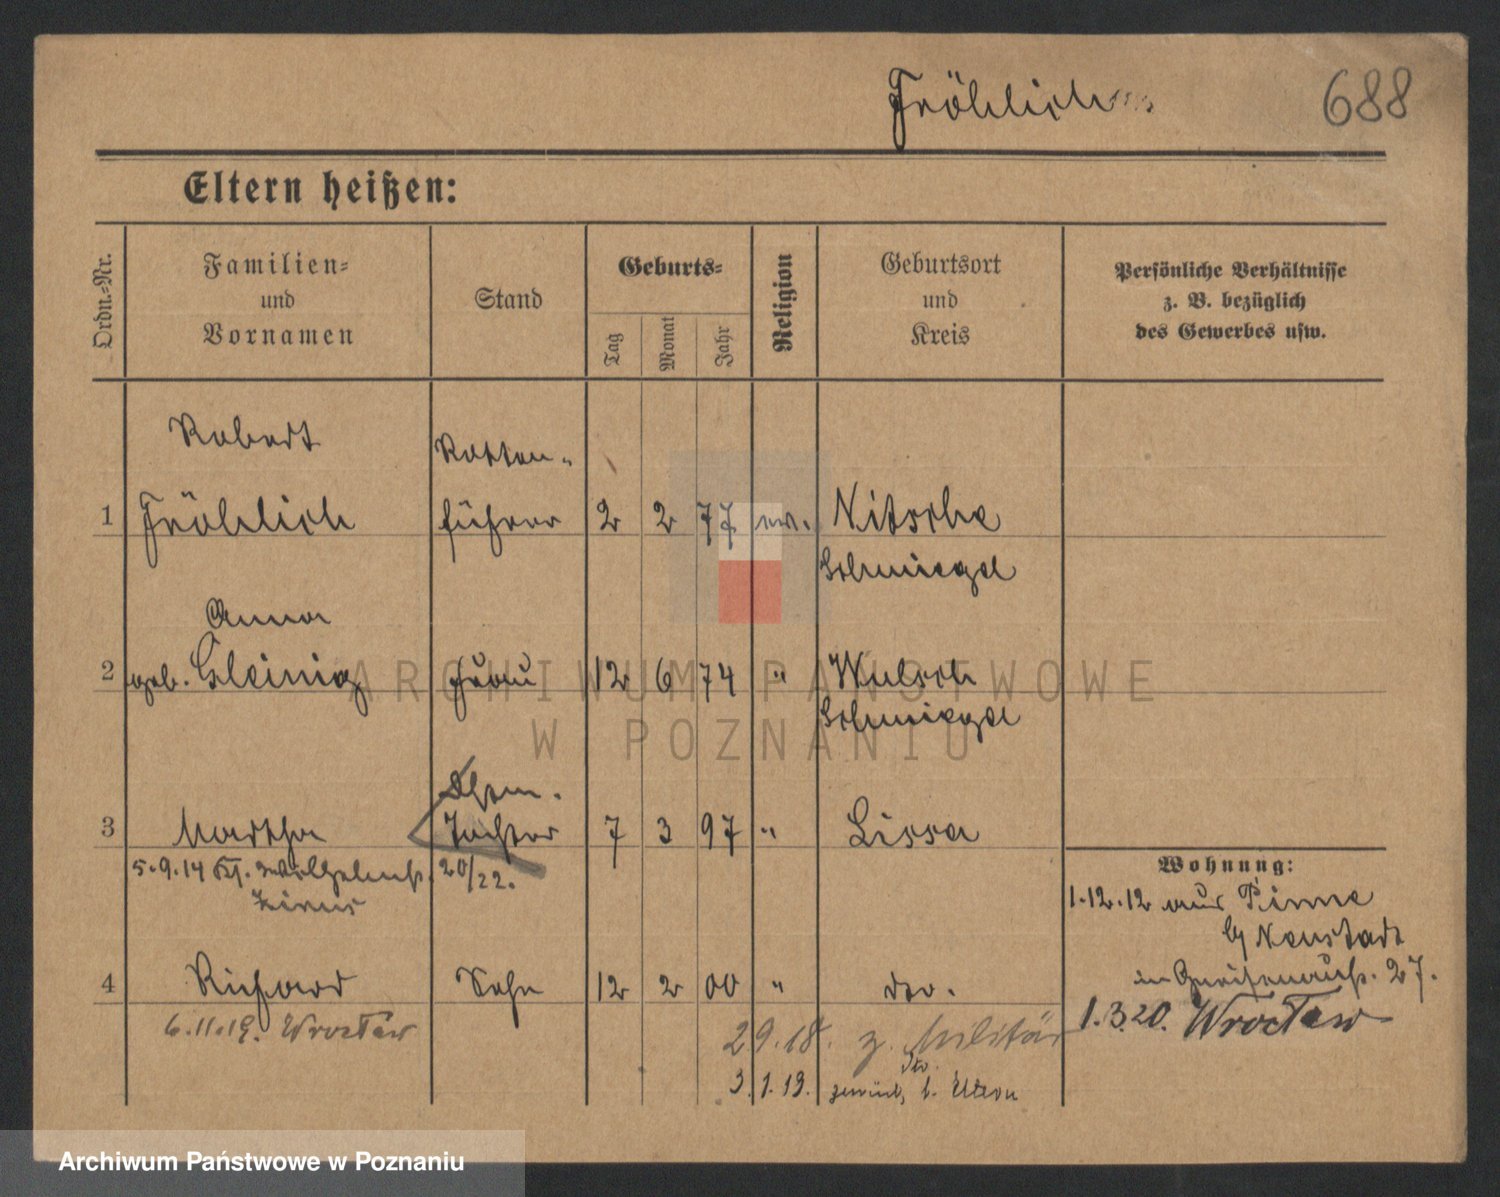 Fröhlich
688
Eltern heißen:
Ordn.-Nr.
Familien-
und
Vornamen
Stand
Geburts-
Tag
Monat
Jahr
Religion
Geburtsort
und
Kreis
Persönliche Verhältnisse
z. B. bezüglich
des Gewerbes usw.
Robert
Rotten-
1 Fröhlich führer 2 2 77 ev. Nitsche
Schmiegel
Anna
2 geb. Gleinig Frau 12 6 74 " Wulsch
Schmiegel
3 Martha Tochter 7 3 97 " Lissa
5.9.14 20/22.
Wohnung:
1.12.12 aus Pinne
b/ Neustadt
in Gneisenaustr. 27.
4 Richard Sohn 12 2 00 " do.
6.11.19. Wrocław
1.3.20. Wrocław
29.18. z. Militär
3.1.19. zurück, b. Eltern
ARCHIWUM PAŃSTWOWE
W POZNANIU
Archiwum Państwowe w Poznaniu